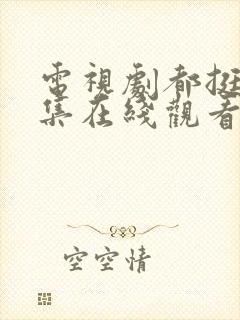 電視劇都挺
集在綫觀看
空空情